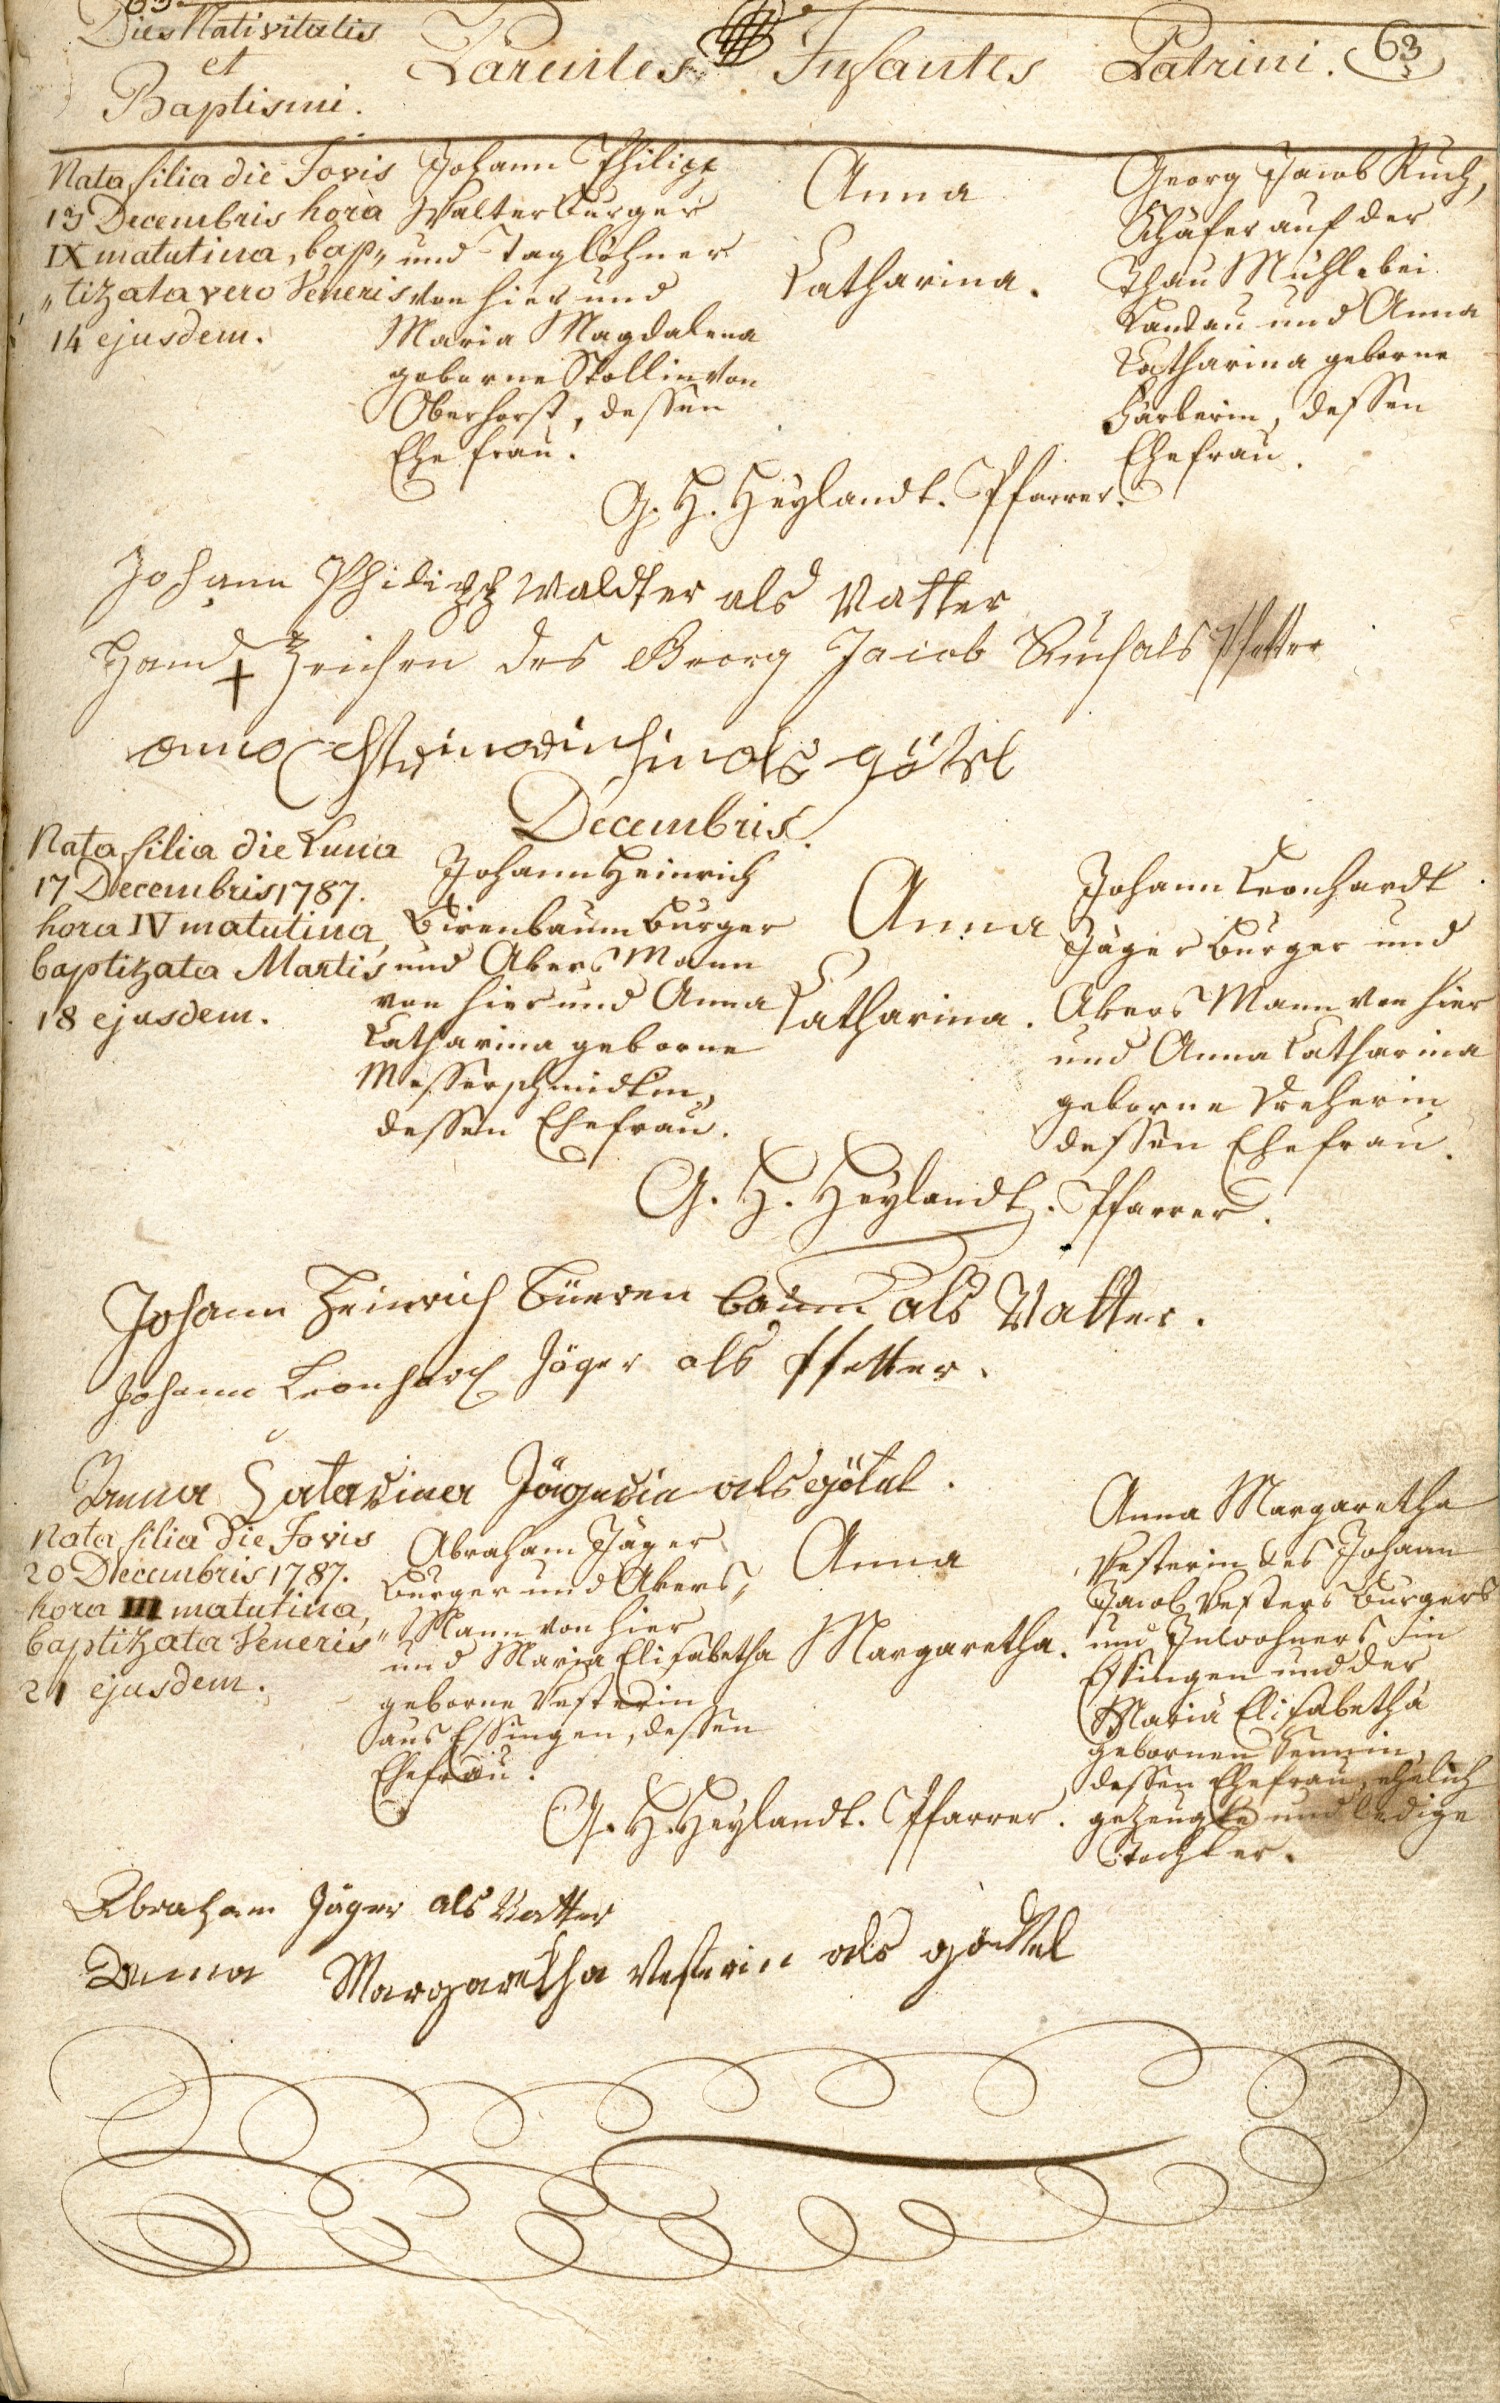 63
Dies Nativitatis
et
Baptismi.
Parentes
Infantes
Patrini.
63
Nata filia die Jovis
13 Decembris hora
IX matutina, bap„
„tizata vero Veneris
14 ejusdem.
Johann Philipp
Walter Burger
und Taglöhner
von hier und
Maria Magdalena
geborne Stollin von
Oberhorst, dessen
Ehefrau.
Anna
Catharina.
Georg Jacob Ruch,
Schäfer auf der
Thau Mühl bei
Landau und Anna
Catharina geborne
Färberin, dessen
Ehefrau.
G. H. Heylandt. Pfarrer.
Johann Philipp Waldter als Vatter
Hand + Zeichen des Georg Jacob Ruch als Pfetter
als götel
Decembris.
Nata filia die Lunae
17 Decembris 1787.
hora IV matutina,
baptizata Martis
18 ejusdem.
Johann Heinrich
Birenbaum Burger
und Akers Mann
von hier und Anna
Catharina geborne
Messerschmidtin,
dessen Ehefrau.
Anna
Catharina.
Johann Leonhardt
Jäger Burger und
Akers Mann von hier
und Anna Catharina
geborne Dreherin
dessen Ehefrau.
G. H. Heylandt. Pfarrer.
Johann Heinrich Büeren baum als Vatter.
Johann Leonhard Jäger als Pfetter.
Anna Catarina Jägerin als götel.
Nata filia die Jovis
20 Decembris 1787.
hora III matutina,
baptizata Veneris
21 ejusdem.
Abraham Jäger
Burger und Akers„
„Mann von hier
und Maria Elisabetha
geborne Vesterin
aus Essingen, dessen
Ehefrau.
Anna
Margaretha.
Anna Margaretha
Vesterin des Johann
Jacob Vesters Burgers
und Inwohners in
Essingen und der
Maria Elisabetha
gebornen
dessen Ehefrau, ehelich
gezeugte und ledige
Tochter.
G. H. Heylandt. Pfarrer.
Abraham Jäger als Vatter
Anna Margaretha Vesterin als göttel